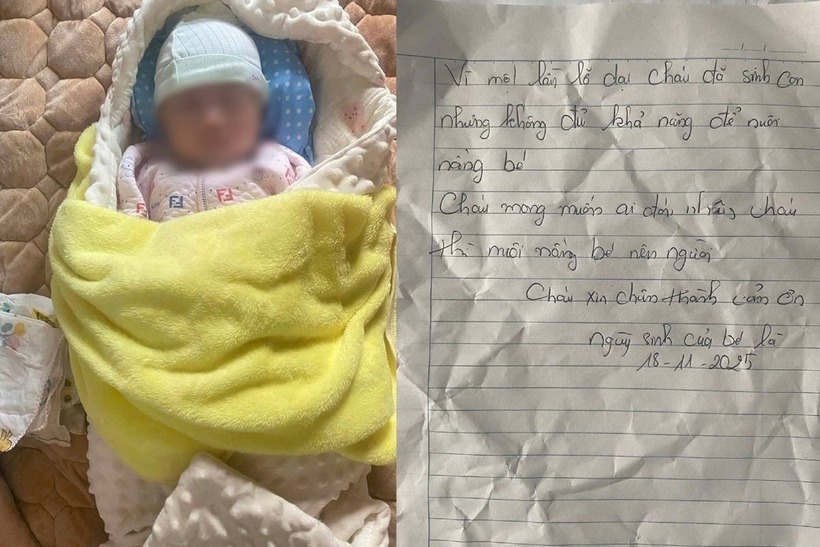 Vì một lần lỡ dại cháu đã sinh con
nhưng không đủ khả năng để nuôi
nâng bé
Cháu mong muốn ai đón nhận cháu
thì nuôi nâng bé nên người
Cháu xin chân thành cảm ơn
ngày sinh của bé là
18-11-2025